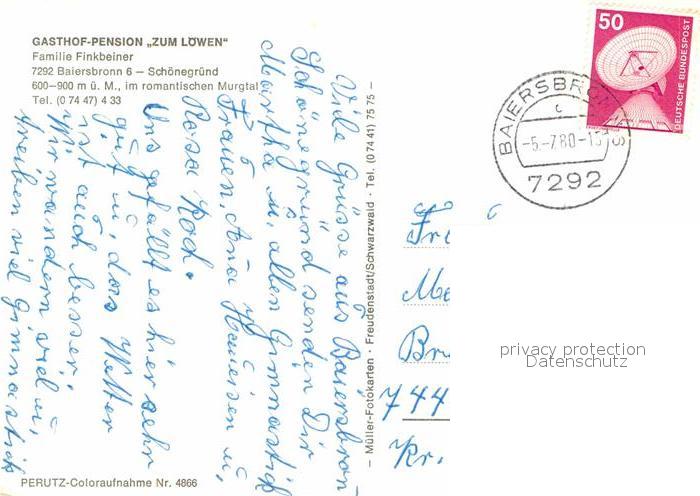 GASTHOF-PENSION „ZUM LÖWEN“
Familie Finkbeiner
7292 Baiersbronn 6 — Schönegründ
600—900 m ü. M., im romantischen Murgtal
Tel. (0 74 47) 4 33
Viele Grüsse aus Baiersbron
Schönegrund senden Dir
Martha u. allen Gymnastik
Frauen, Ana Haueisen u,
Rosa Koch.
Uns gefällt es hier sehr
gut u, das Wetter
ist auch besser,
Wir wandern viel u,
treiben viel Gymnastik
— Müller-Fotokarten · Freudenstadt/Schwarzwald · Tel. (0 74 41) 75 75 —
PERUTZ-Coloraufnahme Nr. 4866
50
DEUTSCHE BUNDESPOST
BAIERSBRONN
c
-5.-7.80-15
7292
744
Kr.
privacy protection
Datenschutz